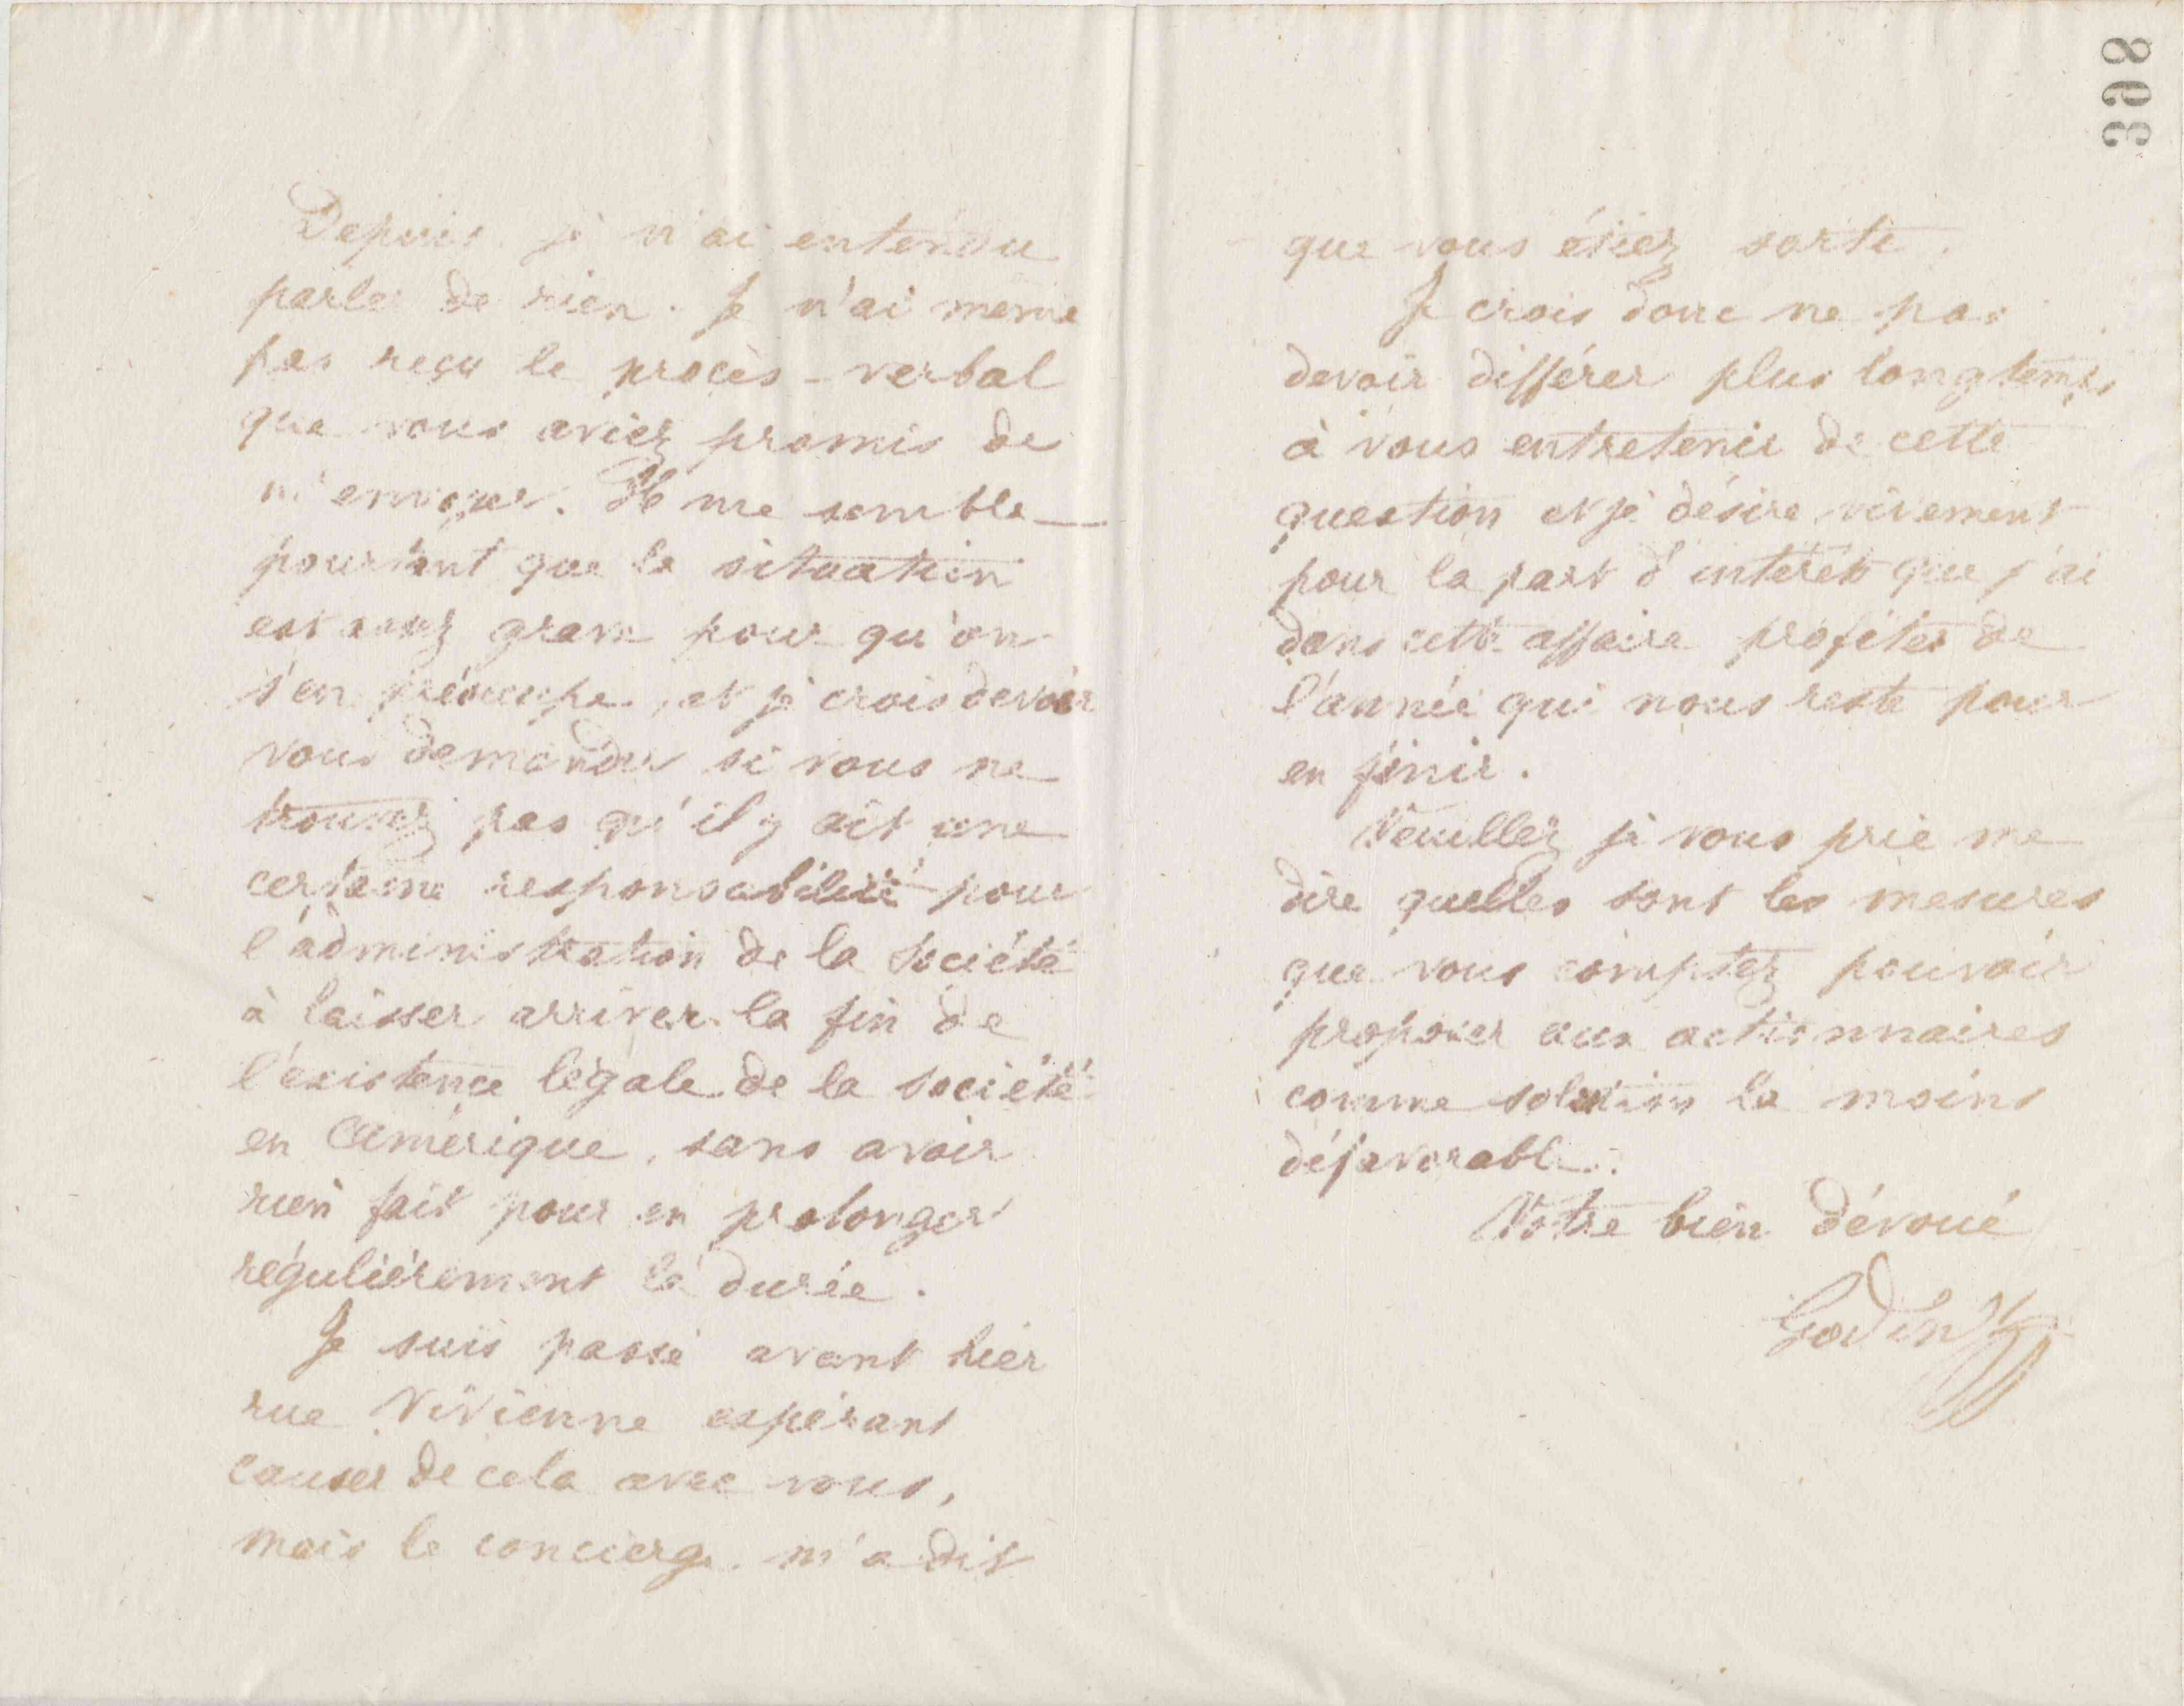 Depuis je n'ai entendu
parler de rien. Je n'ai même
pas reçu le procès-verbal
que vous aviez promis de
m'envoyer. Il me semble
pourtant que la situation
est assez grave pour qu'on
s'en préoccupe, et je crois devoir
vous demander si vous ne
trouvez pas qu'il y ait une
certaine responsabilité pour
l'administration de la Société
à laisser arriver la fin de
l'existence légale de la société
en Amérique, sans avoir
rien fait pour en prolonger
régulièrement la durée.
Je suis passé avant hier
rue Vivienne espérant
causer de cela avec vous,
mais le concierge m'a dit
368
que vous étiez sorti.
Je crois donc ne pas
devoir différer plus longtemps
à vous entretenir de cette
question et je désire vivement
pour la part d'intérêts que j'ai
dans cette affaire profiter de
l'année qui nous reste pour
en finir.
Veuillez je vous prie me
dire quelles sont les mesures
que vous comptez pouvoir
proposer aux actionnaires
comme solution la moins
défavorable.
Votre bien dévoué
Godin